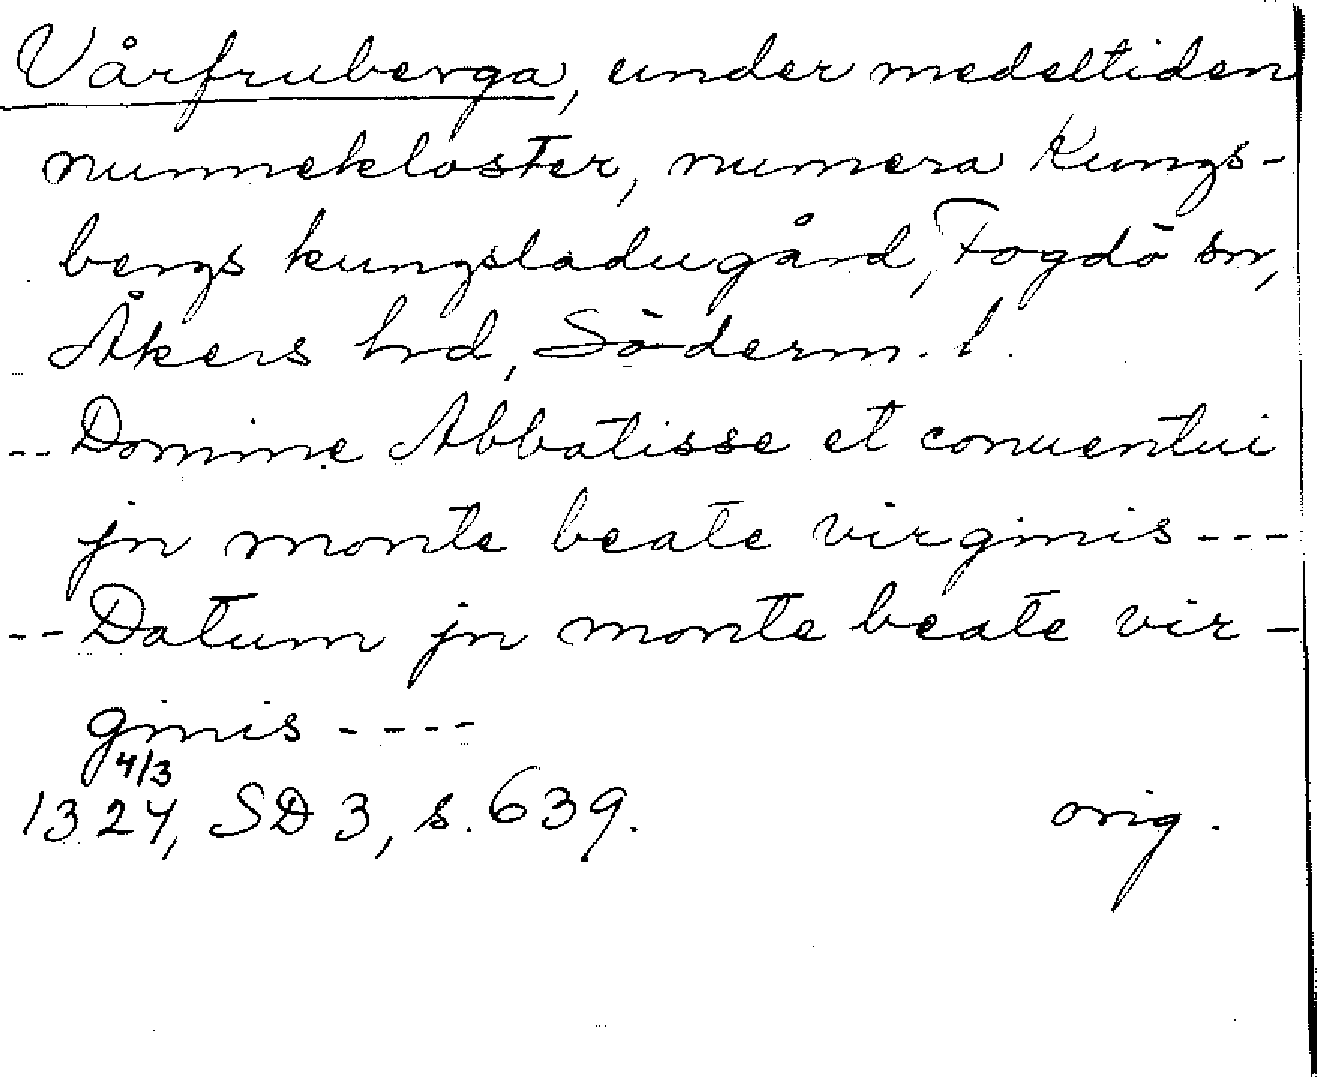 Vårfruberga, under medeltiden
nunnekloster, numera Kungs-
bergs kungsladugård, Fogdö sn,
Åkers hd, Söderm. l.
-- Domine Abbatisse et conuentui
jn monte beate virginis ---
-- Datum jn monte beate vir-
ginis ----
4/3
1324, SD 3, s. 639. orig.